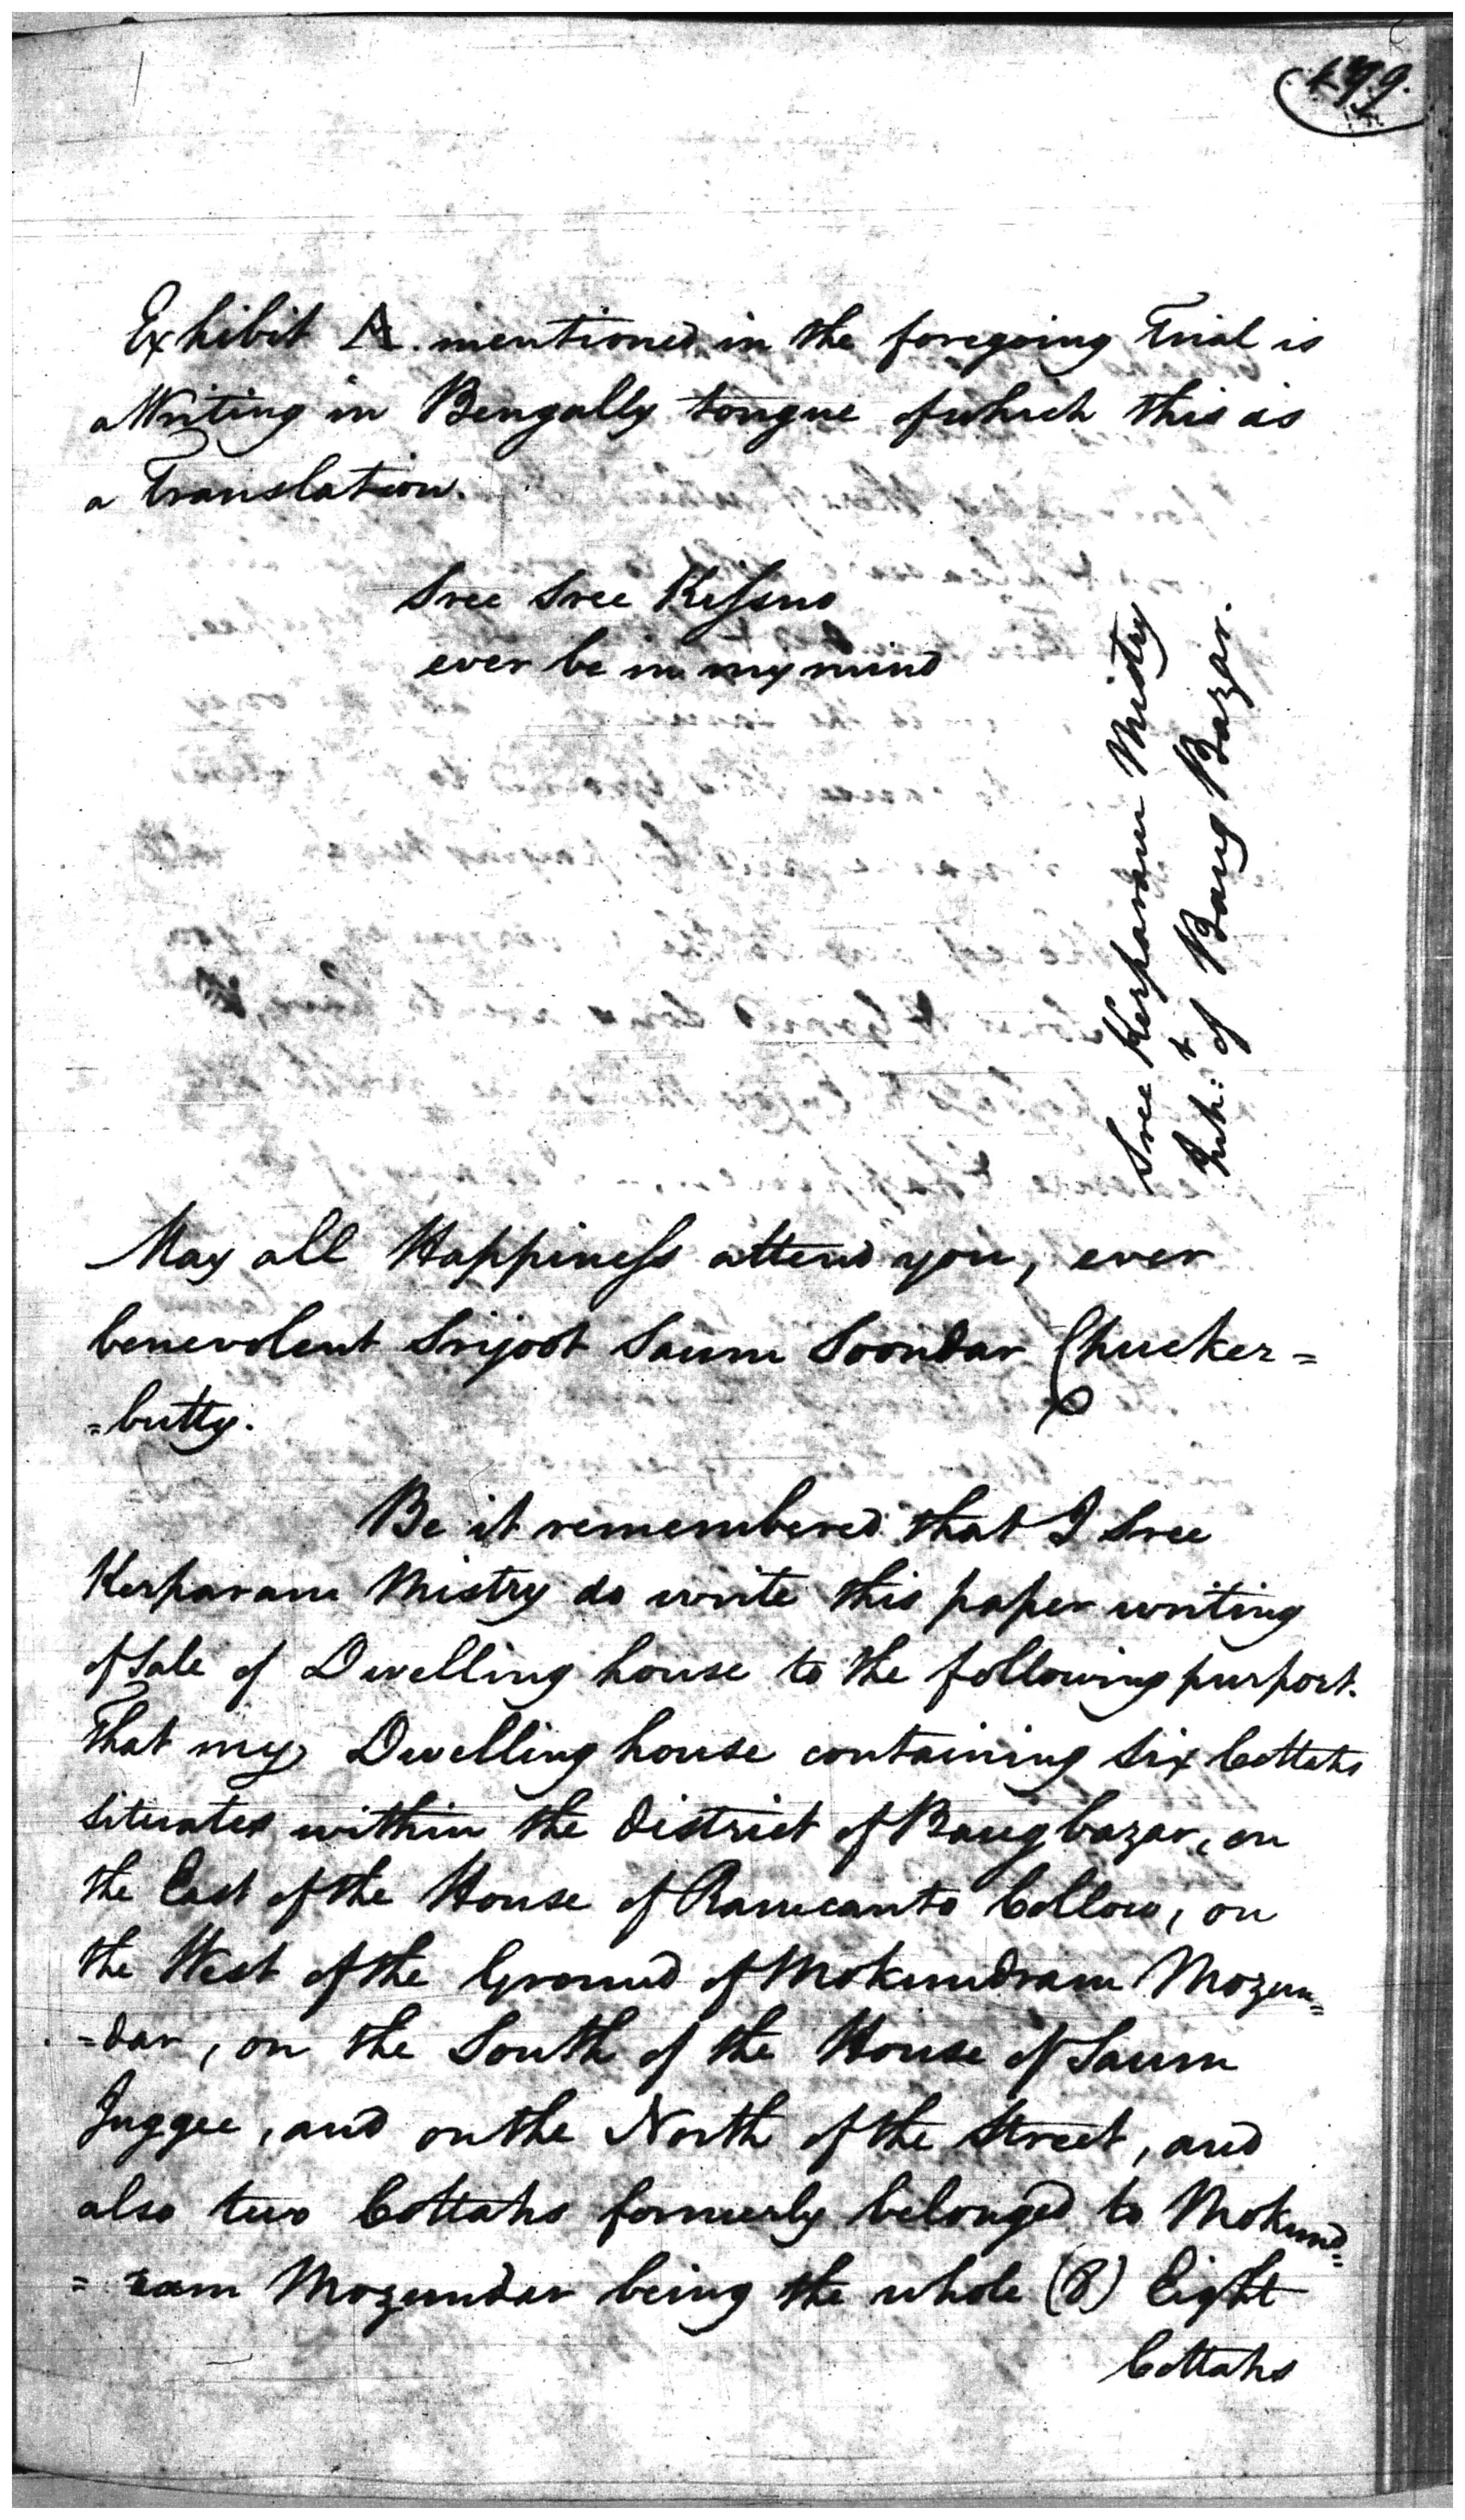 Exhibit A. mentioned in the foregoing Trial is
a Writing in Bengally tongue of which this is
a Translation.
Sree Sree Kissno
ever be in my mind
Sree Kerparam Mistry
Inh:t of Baug Bazar.
May all Happiness attend you, ever
benevolent Srijoot Saum Soondar Chucker=
=butty.
Be it remembered that I Sree
Kerparam Mistry do write this paper writing
of Sale of Dwelling house to the following purport.
That my Dwelling house containing Six Cottahs
situates within the district of Baugbazar, on
the East of the House of Ramcanto Collow, on
the West of the Ground of Mokundram Mozun=
=dar, on the South of the House of Saum
Juggee, and on the North of the Street, and
also two Cottahs formerly belonged to Mokund=
=ram Mozundar being the whole (8) Eight
Cottahs